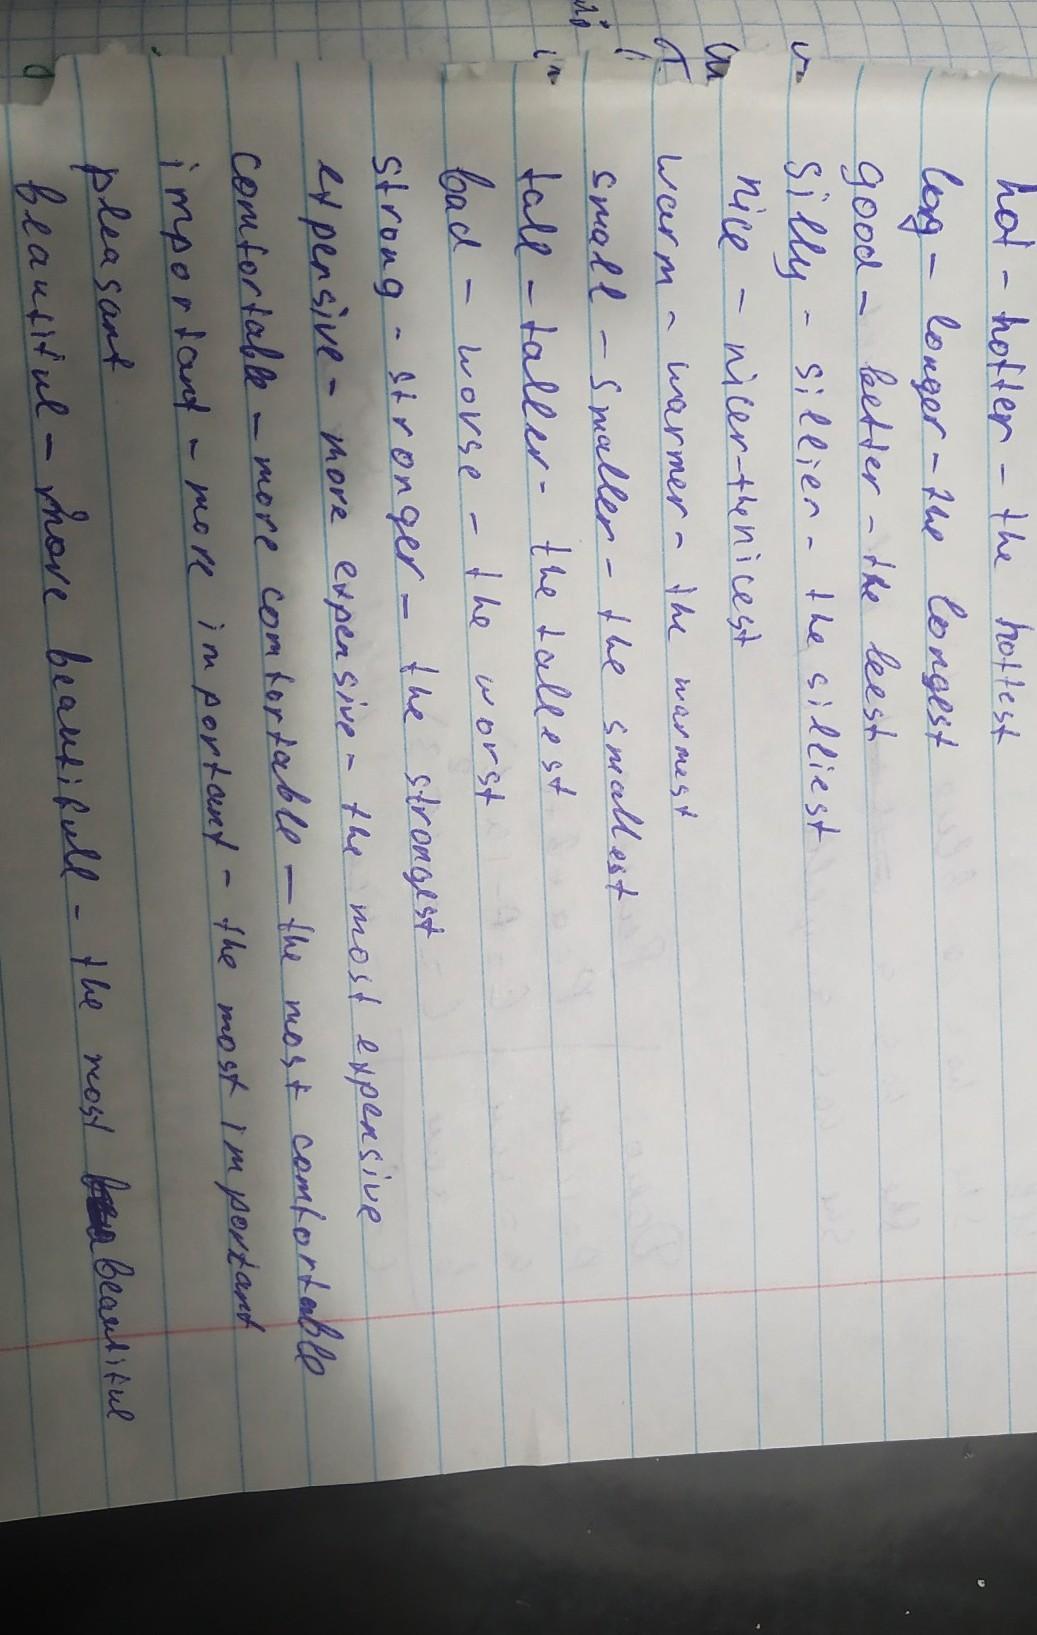 hot - hotter - the hottest
long - longer - the longest
good - better - the best
silly - sillier - the silliest
nice - nicer - the nicest
warm - warmer - the warmest
small - smaller - the smallest
tall - taller - the tallest
bad - worse - the worst
strong - stronger - the strongest
expensive - more expensive - the most expensive
comfortable - more comfortable - the most comfortable
important - more important - the most important
pleasant
beautiful - more beautifull - the most beautiful